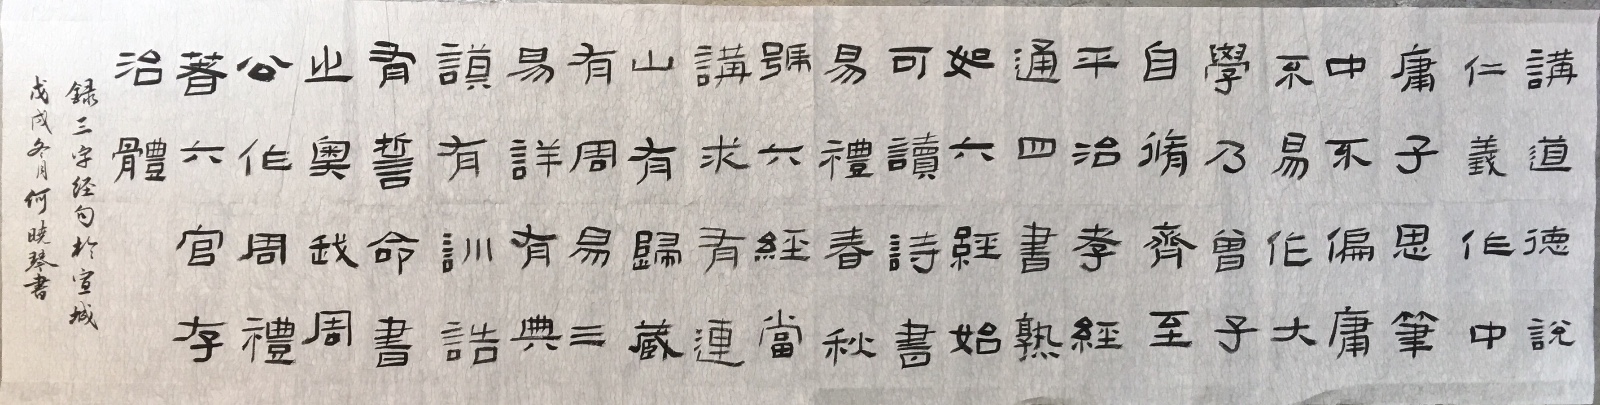 講道德說
仁義作中
庸子思筆
中不偏庸
不易作大
學乃曾子
自脩齊至
平治孝經
通四書熟
如六經始
可讀詩書
易禮春秋
號六經當
講求有連
山有歸藏
有周易三
易詳有典
謨有訓誥
有誓命書
之奧我周
公作周禮
著六官存
治體
録三字经句於宣城
戊戌冬月何晓琴書